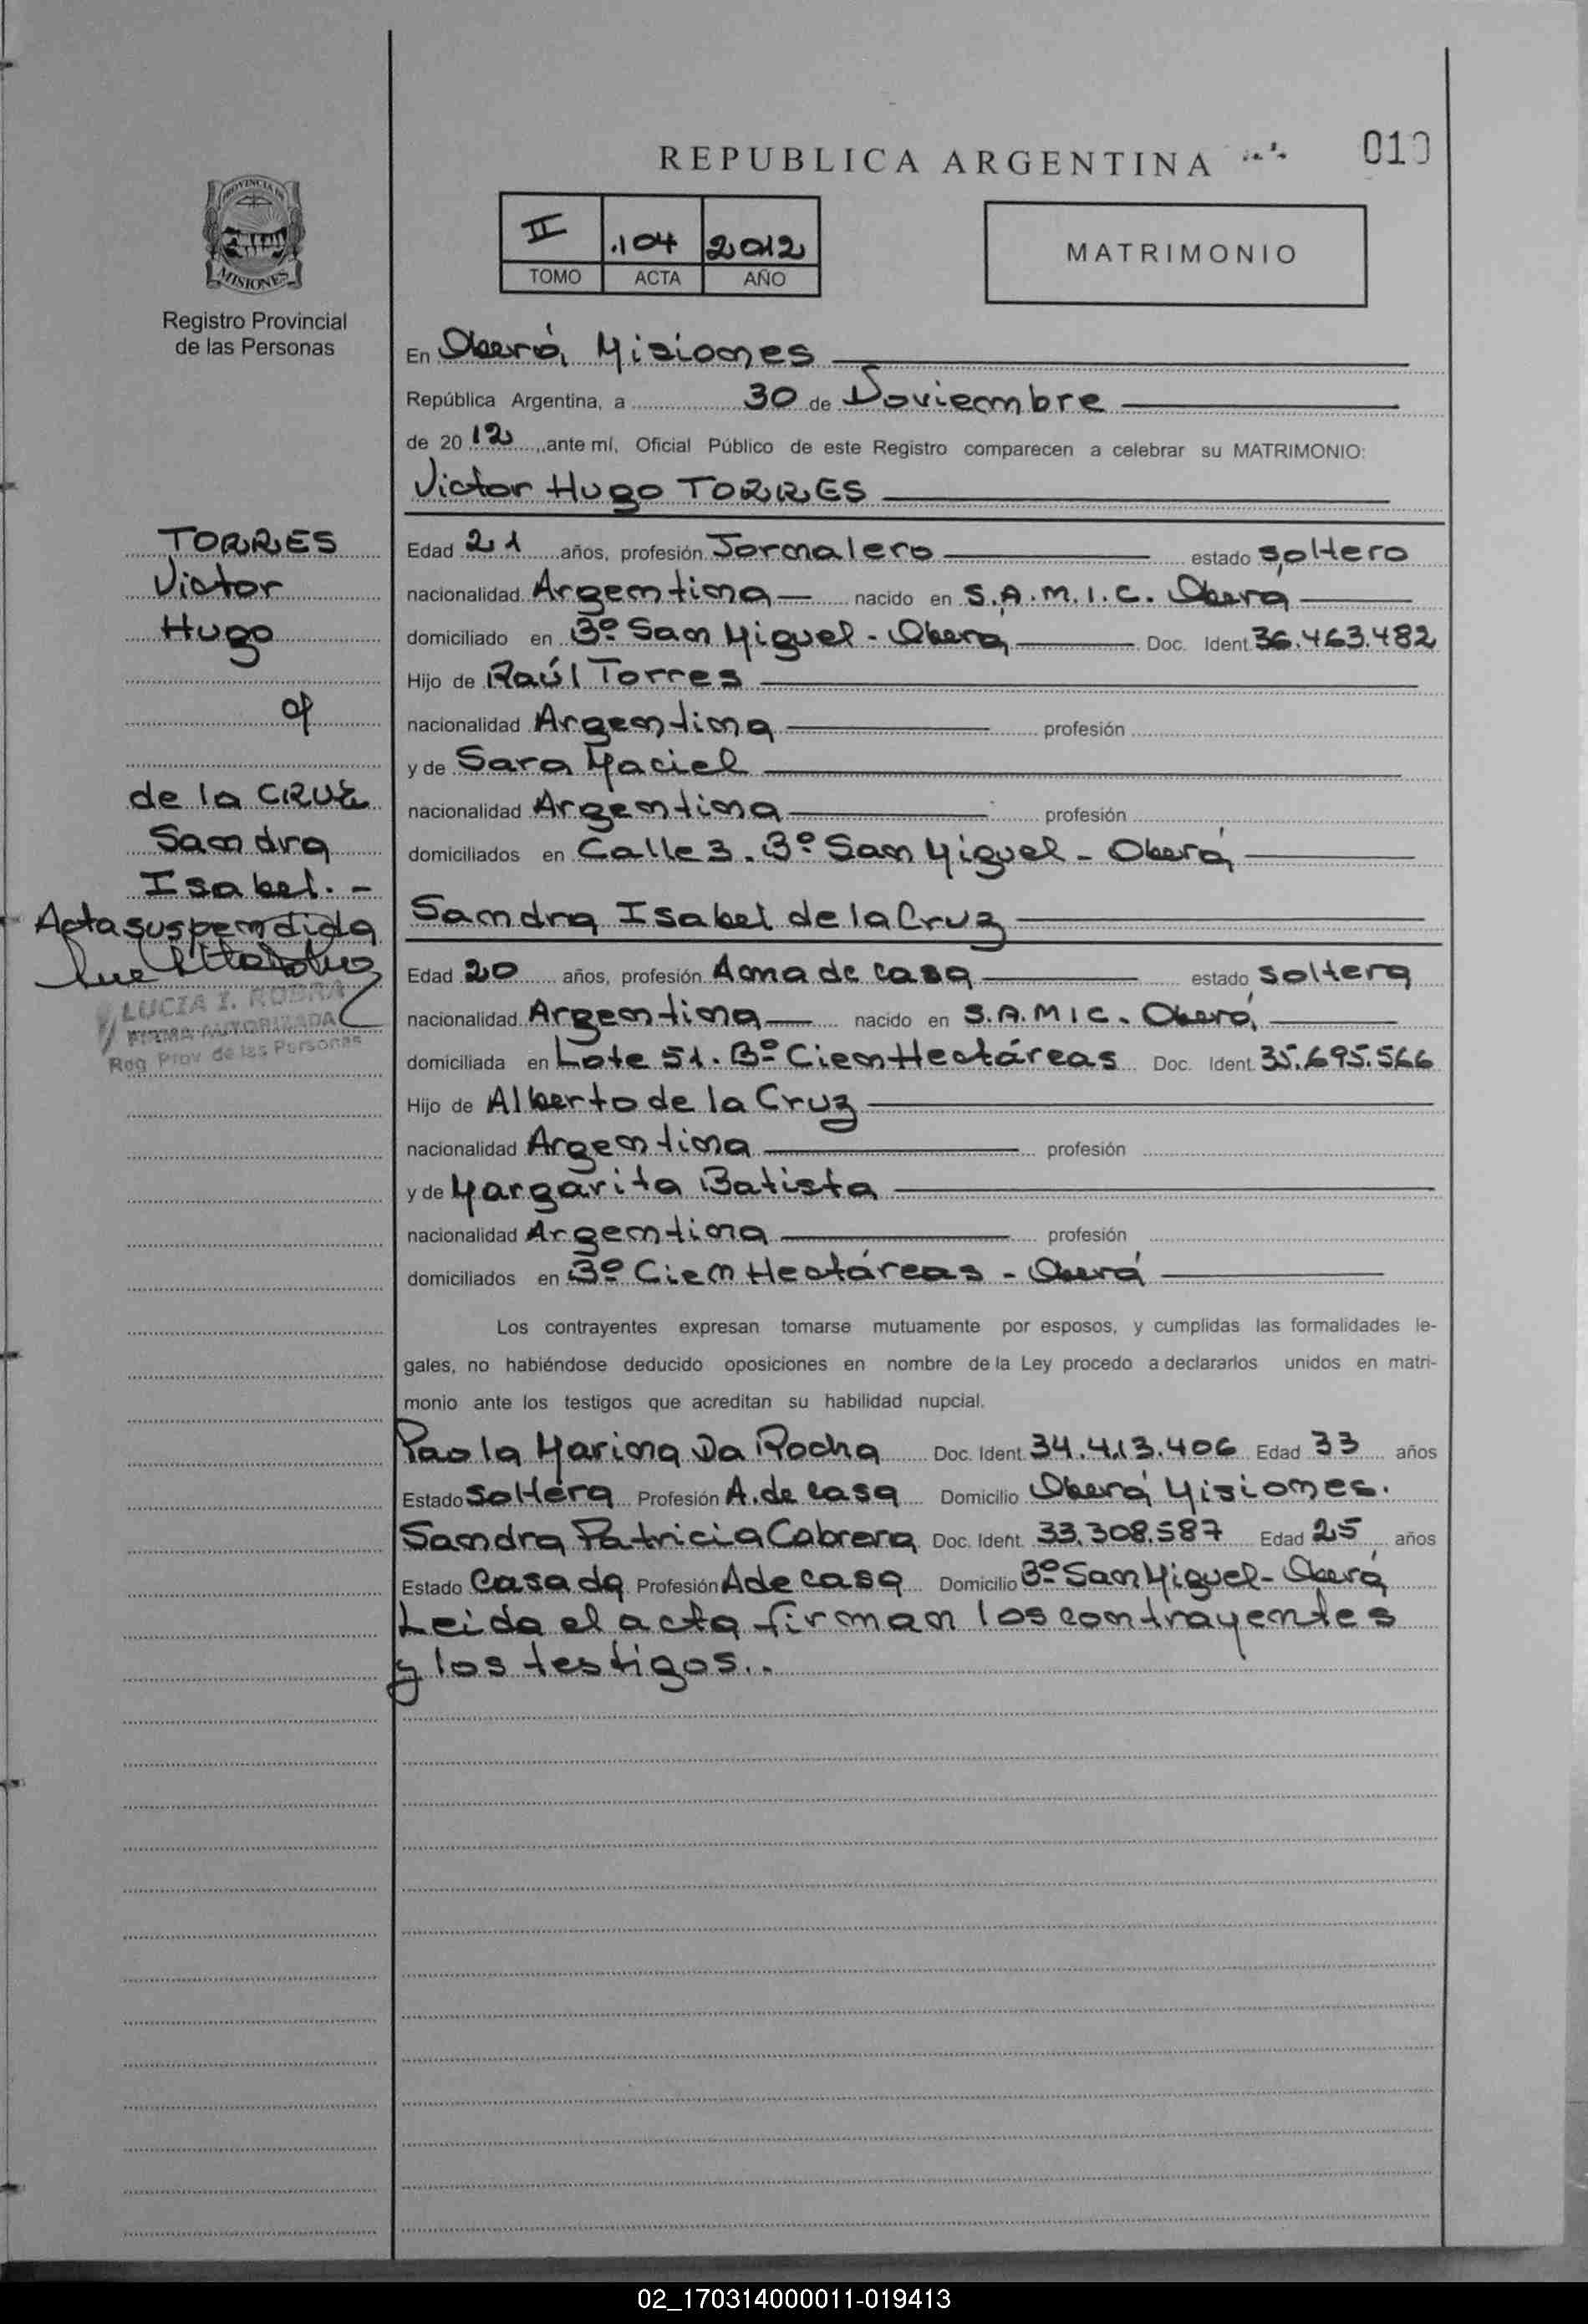 REPUBLICA ARGENTINA
010
PROVINCIA DE
MISIONES
Registro Provincial
de las Personas
II .104 2012
TOMO ACTA AÑO
MATRIMONIO
En Oberá, Misiones
República Argentina, a 30 de Noviembre
de 2012, ante mí, Oficial Público de este Registro comparecen a celebrar su MATRIMONIO:
Victor Hugo TORRES
Edad 21 años, profesión Jornalero estado soltero
nacionalidad Argentina nacido en S.A.M.I.C. Oberá
domiciliado en Bº San Miguel - Oberá Doc. Ident. 36.463.482
Hijo de Raúl Torres
nacionalidad Argentina profesión
y de Sara Maciel
nacionalidad Argentina profesión
domiciliados en Calle 3. Bº San Miguel - Oberá
Sandra Isabel de la Cruz
Edad 20 años, profesión Ama de casa estado soltera
nacionalidad Argentina nacido en S.A.M.I.C. Oberá
domiciliada en Lote 51. Bº Cien Hectáreas Doc. Ident. 35.695.566
Hijo de Alberto de la Cruz
nacionalidad Argentina profesión
y de Margarita Batista
nacionalidad Argentina profesión
domiciliados en Bº Cien Hectáreas - Oberá
Los contrayentes expresan tomarse mutuamente por esposos, y cumplidas las formalidades le-
gales, no habiéndose deducido oposiciones en nombre de la Ley procedo a declararlos unidos en matri-
monio ante los testigos que acreditan su habilidad nupcial.
Paola Marina Da Rocha Doc. Ident. 34.413.406 Edad 33 años
Estado Soltera Profesión A. de casa Domicilio Oberá Misiones.
Sandra Patricia Cabrera Doc. Ident. 33.308.587 Edad 25 años
Estado Casada Profesión A de casa Domicilio Bº San Miguel - Oberá
Leida el acta firman los contrayentes
y los testigos..
TORRES
Victor
Hugo
c/
de la CRUZ
Sandra
Isabel. -
Acta suspendida
LUCIA I. ROBRA
FIRMA AUTORIZADA
Reg. Prov. de las Personas
02_170314000011-019413